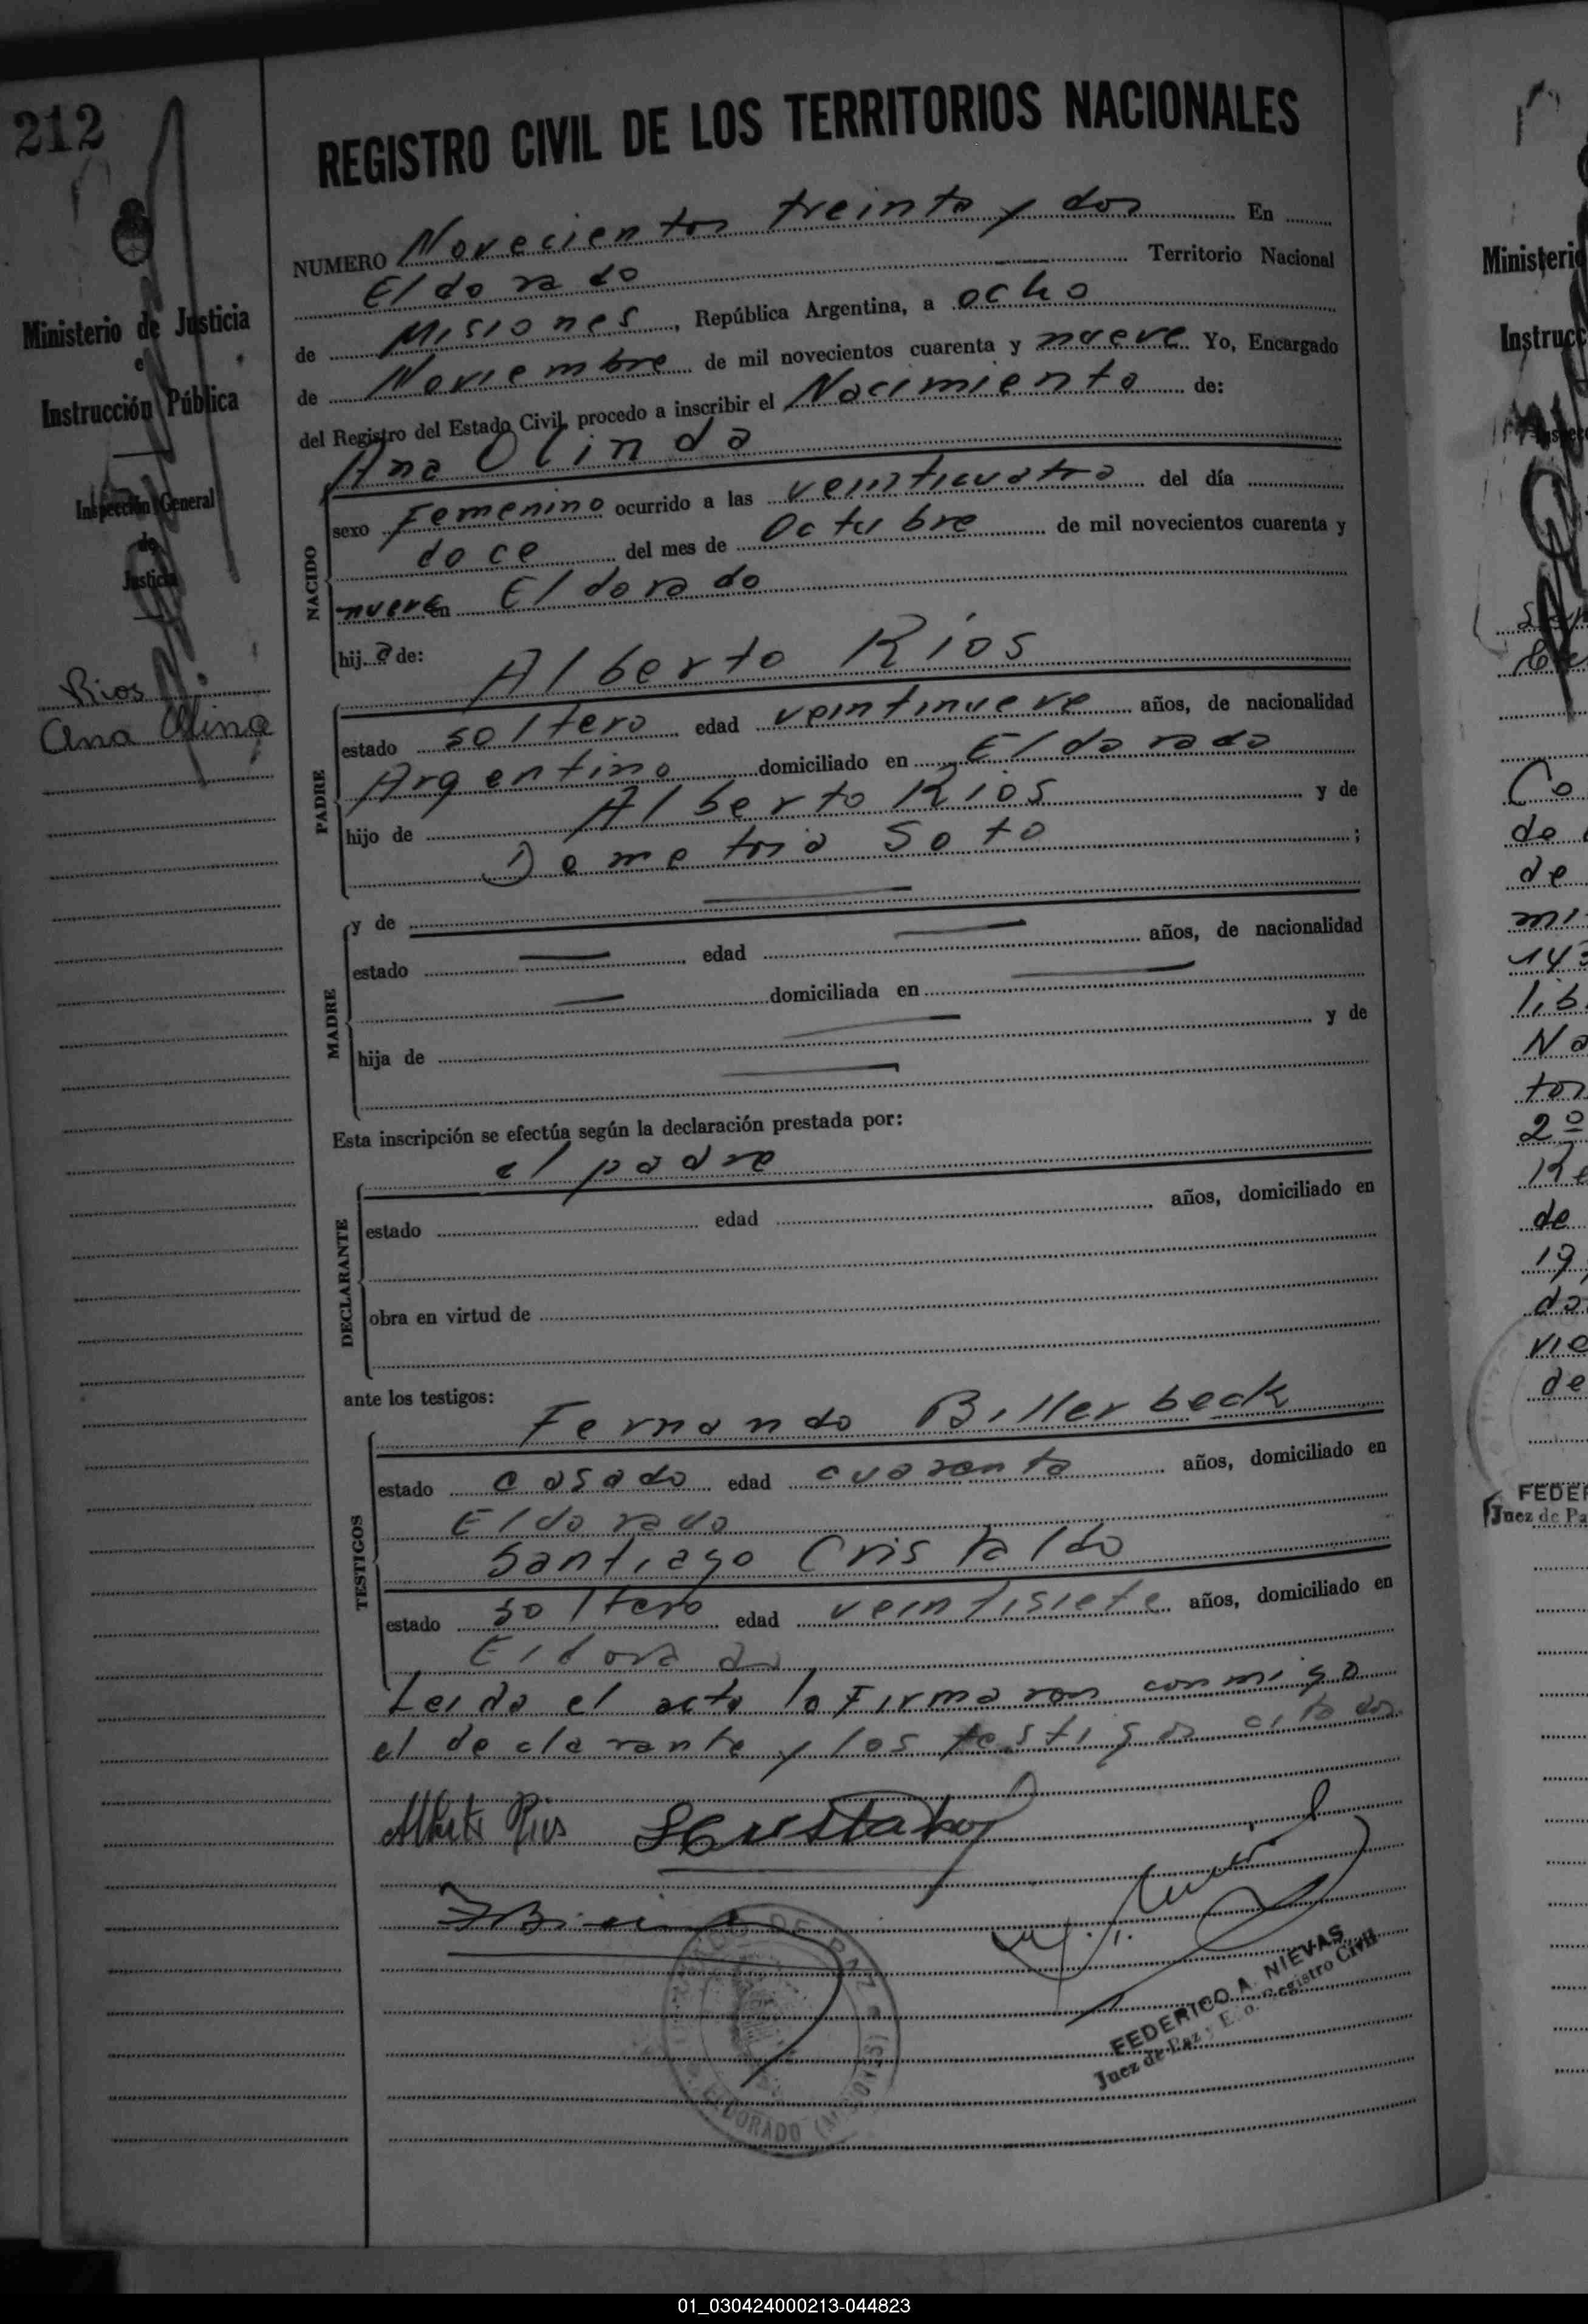 212
REGISTRO CIVIL DE LOS TERRITORIOS NACIONALES
NUMERO Novecientos treinta y dos En
Eldorado Territorio Nacional
de Misiones, República Argentina, a ocho
de Noviembre de mil novecientos cuarenta y nueve Yo, Encargado
del Registro del Estado Civil, procedo a inscribir el Nacimiento de:
Ana Olinda
Ministerio de Justicia
e
Instrucción Pública
Inspección General
de
Justicia
Rios
Ana Olina
NACIDO
sexo Femenino ocurrido a las veinticuatro del día
doce del mes de Octubre de mil novecientos cuarenta y
nueve en Eldorado
hija de:
Alberto Rios
PADRE
estado soltero edad veintinueve años, de nacionalidad
Argentino domiciliado en Eldorado
hijo de Alberto Rios y de
Demetria Soto ;
MADRE
y de
estado edad años, de nacionalidad
domiciliada en
hija de y de
Esta inscripción se efectúa según la declaración prestada por:
el padre
DECLARANTE
estado edad años, domiciliado en
obra en virtud de
ante los testigos:
TESTIGOS
Fernando Billerbeck
estado casado edad cuarenta años, domiciliado en
Eldorado
Santiago Cristaldo
estado soltero edad veintisiete años, domiciliado en
Eldorado
Leida el acta la Firmaron conmigo
el declarante y los testigos citados
Alberto Rios SCristaldo
FEDERICO A. NIEVAS
Juez de Paz y E. o. Registro Civil
DE PAZ
ELDORADO (MISIONES)
Ministerio
Instrucc
Co
de
de
mi
143
lib
Na
tos
2º
Re
de
19
do
vie
de
FEDER
Juez de Pa
01_030424000213-044823